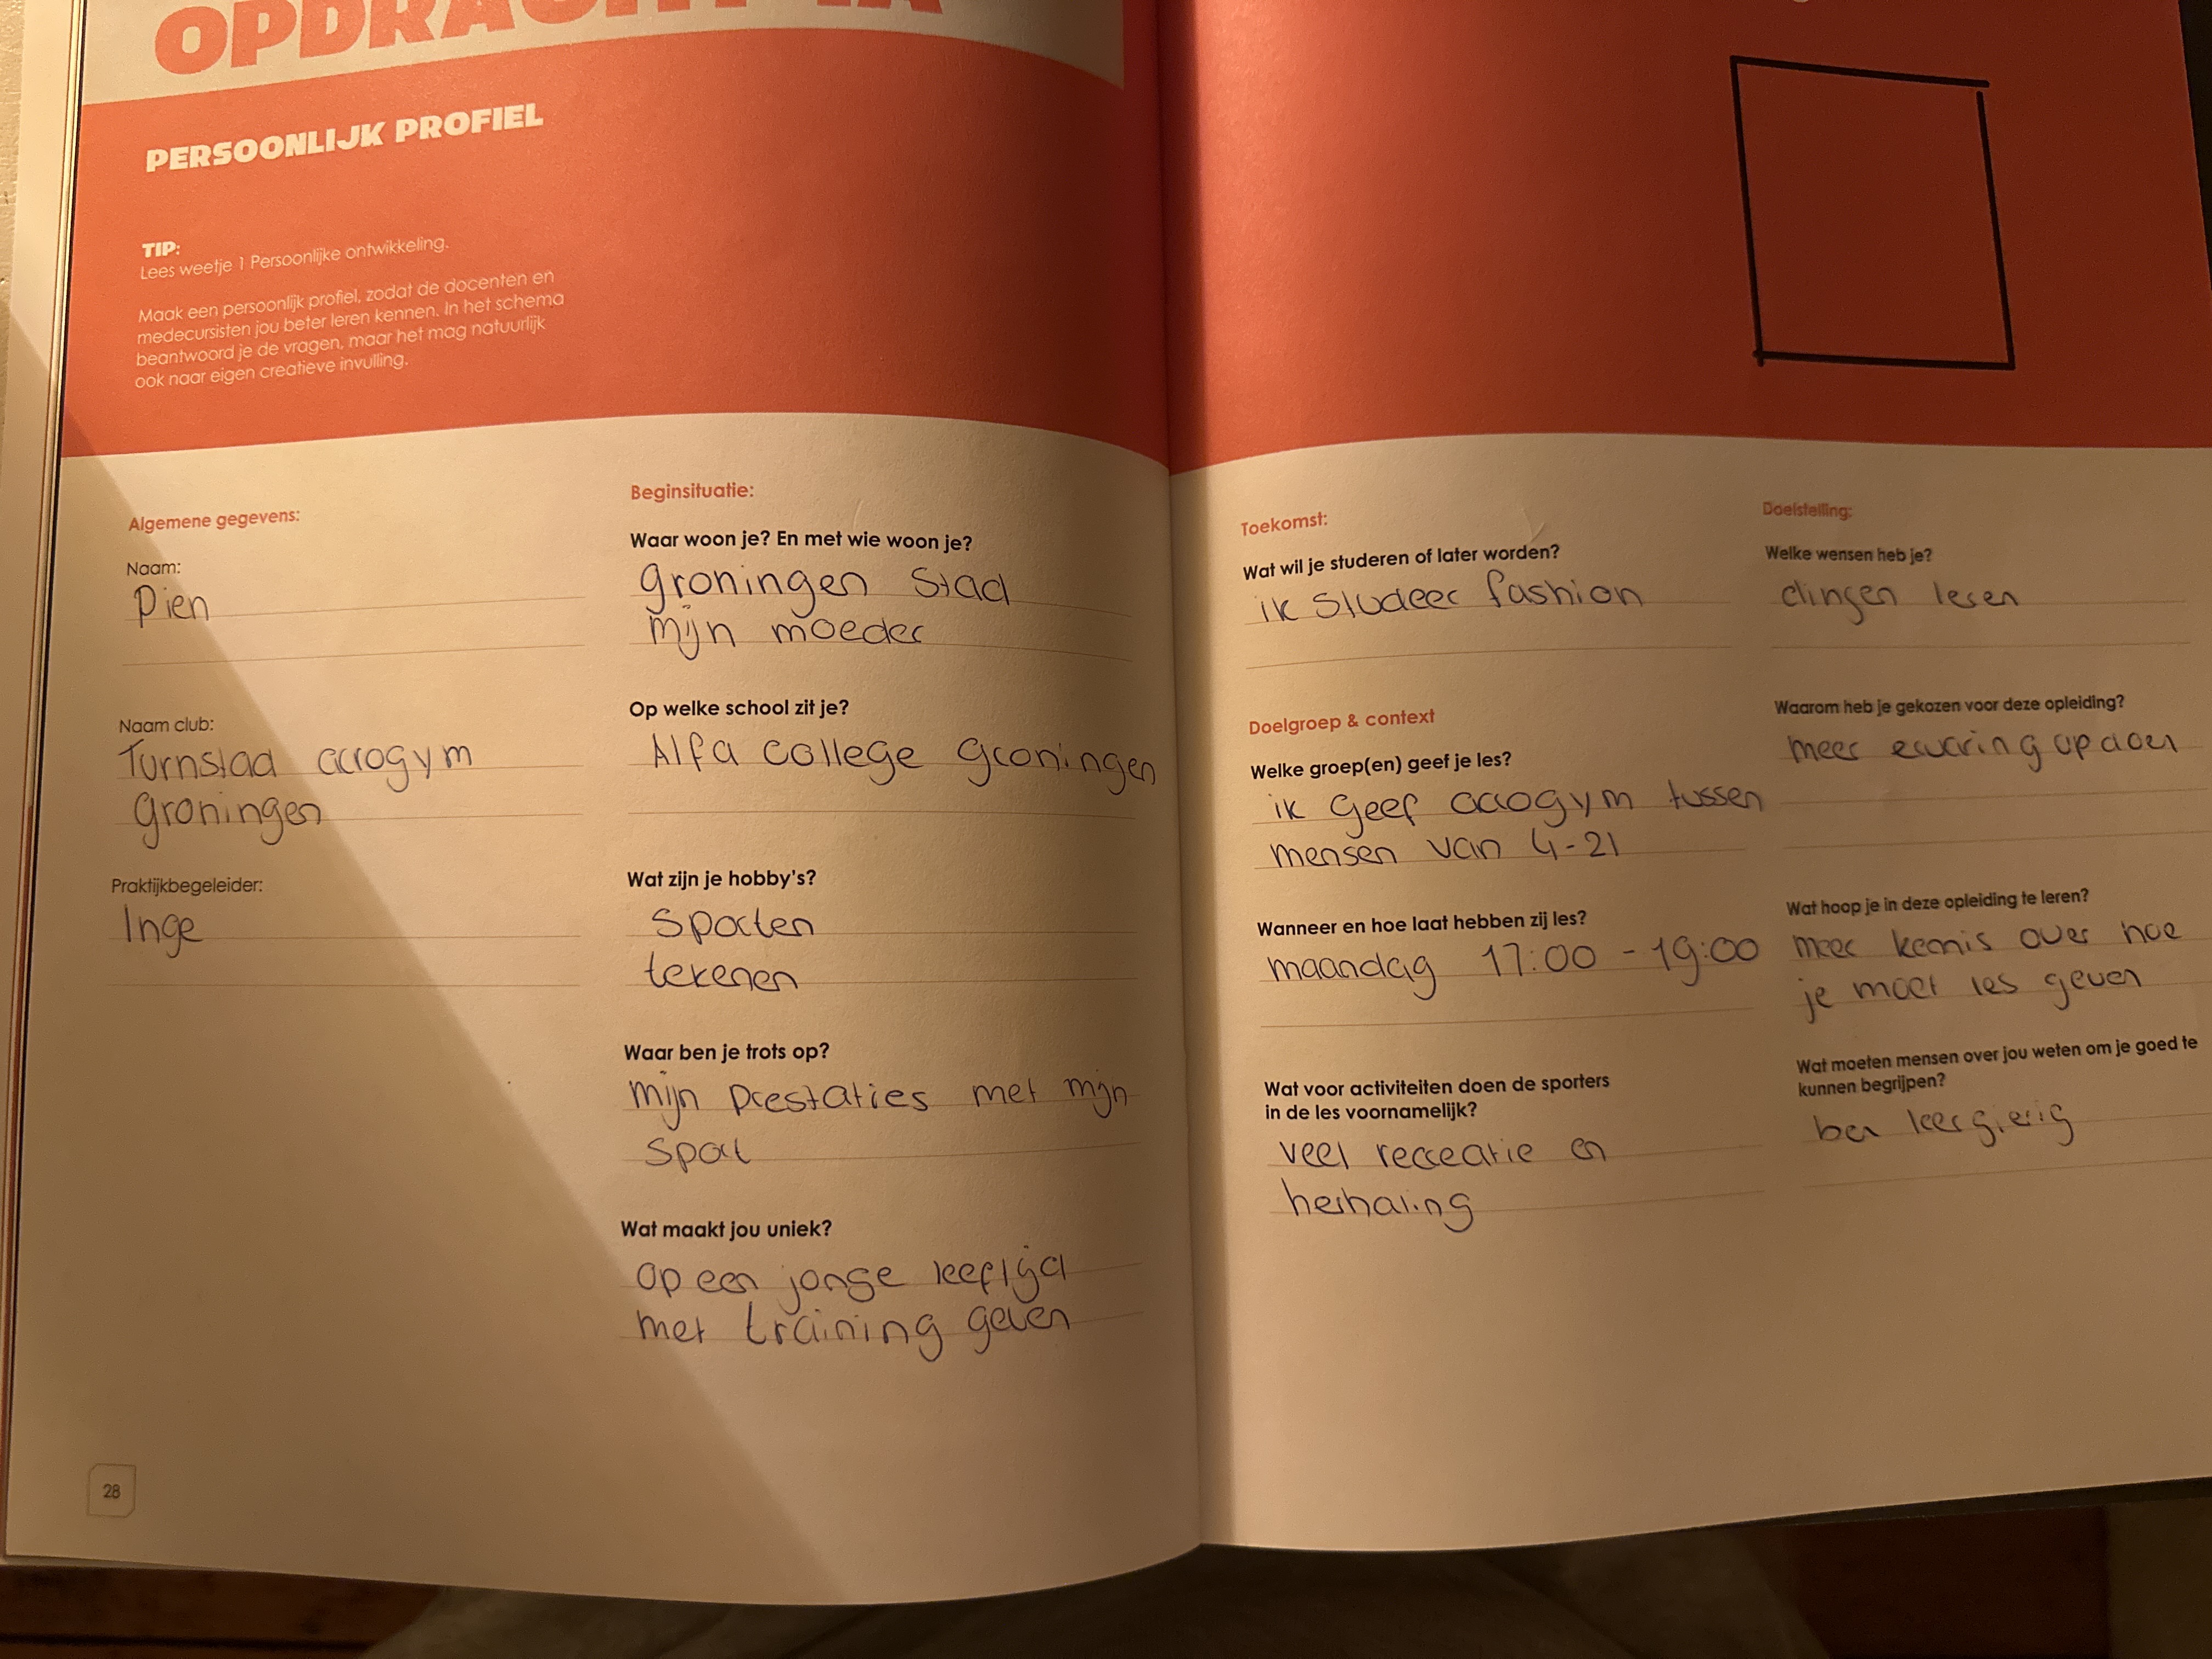 PERSOONLIJK PROFIEL
TIP:
Lees weetje 1 Persoonlijke ontwikkeling.
Maak een persoonlijk profiel, zodat de docenten en
medecursisten jou beter leren kennen. In het schema
beantwoord je de vragen, maar het mag natuurlijk
ook naar eigen creatieve invulling.
Algemene gegevens:
Naam:
Pien
Naam club:
Turnstad acrogym
groningen
Praktijkbegeleider:
Inge
Beginsituatie:
Waar woon je? En met wie woon je?
groningen stad
mijn moeder
Op welke school zit je?
Alfa college groningen
Wat zijn je hobby's?
Sporten
tekenen
Waar ben je trots op?
mijn prestaties met mijn
sport
Wat maakt jou uniek?
op een jonge leeftijd
met training geven
28
Toekomst:
Wat wil je studeren of later worden?
ik studeer fashion
Doelgroep & context
Welke groep(en) geef je les?
ik geef acrogym tussen
mensen van 4-21
Wanneer en hoe laat hebben zij les?
maandag 17:00 - 19:00
Wat voor activiteiten doen de sporters
in de les voornamelijk?
veel recreatie en
herhaling
Doelstelling:
Welke wensen heb je?
dingen leren
Waarom heb je gekozen voor deze opleiding?
meer ervaring opdoen
Wat hoop je in deze opleiding te leren?
meer kennis over hoe
je moet les geven
Wat moeten mensen over jou weten om je goed te
kunnen begrijpen?
ben leergierig